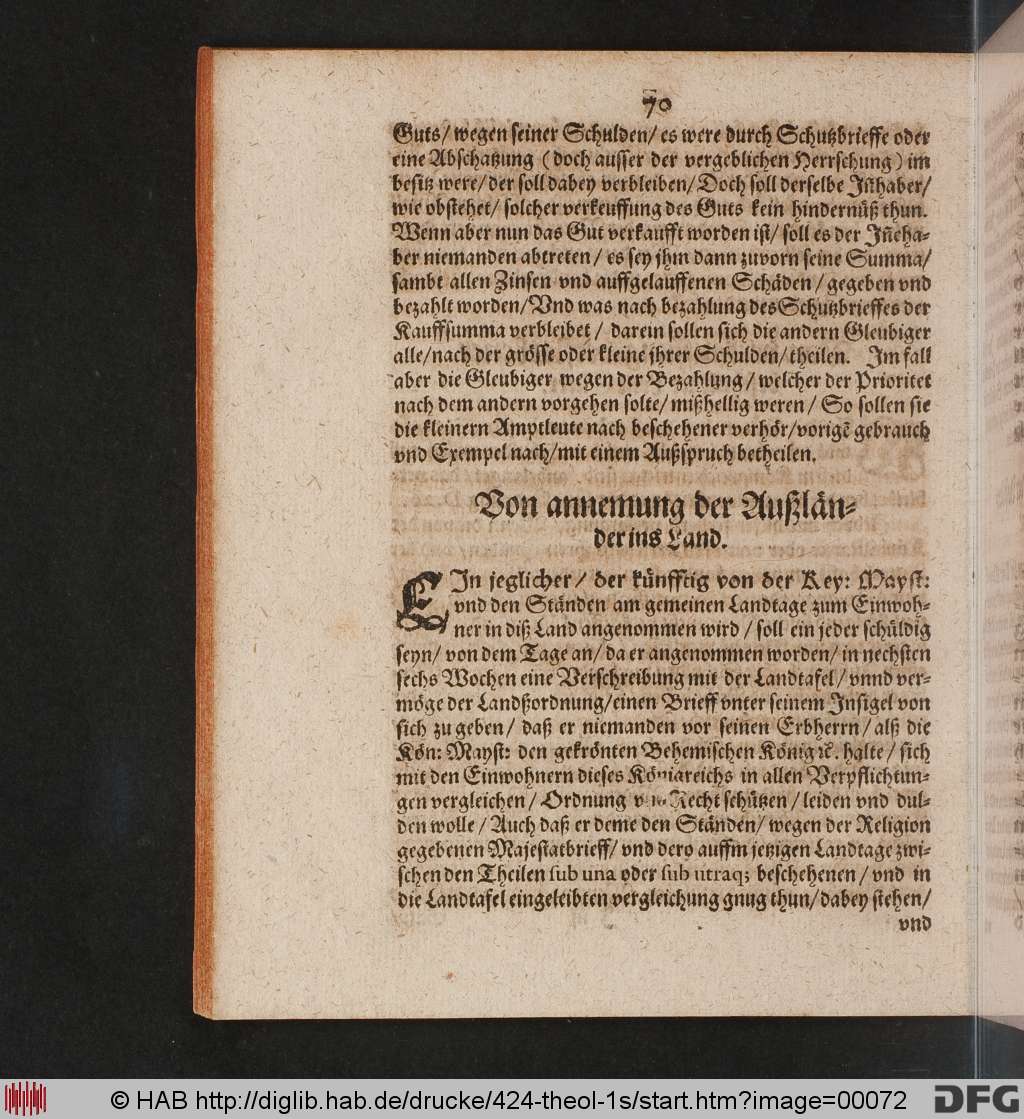 70
Guts/ wegen seiner Schulden/ es were durch Schutzbrieffe oder
eine Abschatzung (doch ausser der vergeblichen Herrschung) im
besitz were/ der soll dabey verbleiben/ Doch soll derselbe Iñhaber/
wie obstehet/ solcher verkeuffung des Guts kein hindernüß thun.
Wenn aber nun das Gut verkaufft worden ist/ soll es der Iñeha-
ber niemanden abtreten/ es sey jhm dann zuvorn seine Summa/
sambt allen Zinsen vnd auffgelauffenen Schäden/ gegeben vnd
bezahlt worden/ Vnd was nach bezahlung des Schutzbrieffes der
Kauffsumma verbleibet/ darein sollen sich die andern Gleubiger
alle/ nach der grösse oder kleine jhrer Schulden/ theilen. Im fall
aber die Gleubiger wegen der Bezahlung/ welcher der Prioritet
nach dem andern vorgehen solte/ mißhellig weren/ So sollen sie
die kleinern Amptleute nach beschehener verhör/ vorigē gebrauch
vnd Exempel nach/ mit einem Außspruch betheilen.
Von annemung der Außlän-
der ins Land.
EIn jeglicher/ der künfftig von der Key: Mayst:
vnd den Ständen am gemeinen Landtage zum Einwoh-
ner in diß Land angenommen wird/ soll ein jeder schüldig
seyn/ von dem Tage an/ da er angenommen worden/ in nechsten
sechs Wochen eine Verschreibung mit der Landtafel/ vnnd ver-
möge der Landßordnung/ einen Brieff vnter seinem Insigel von
sich zu geben/ daß er niemanden vor seinen Erbherrn/ alß die
Kön: Mayst: den gekrönten Behemischen König ꝛc. halte/ sich
mit den Einwohnern dieses Königreichs in allen Verpflichtun-
gen vergleichen/ Ordnung Recht schützen/ leiden vnd dul-
den wolle/ Auch daß er deme den Ständen/ wegen der Religion
gegebenen Majestatbrieff/ vnd dero auffm jetzigen Landtage zwi-
schen den Theilen sub una oder sub utraqꝫ beschehenen/ vnd in
die Landtafel eingeleibten vergleichung gnug thun/ dabey stehen/
vnd
© HAB http://diglib.hab.de/drucke/424-theol-1s/start.htm?image=00072
DFG